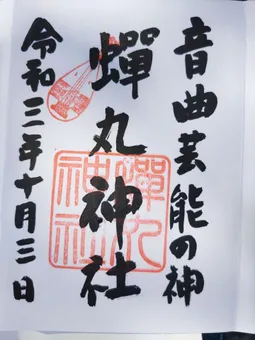 音曲芸能の神
蟬丸神社
令和二年十月三日
蟬丸
神社